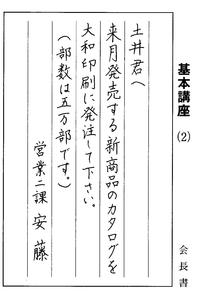 基本講座
(2)
会長書
土井君へ
来月発売する新商品のカタログを
大和印刷に発注して下さい。
(部数は五万部です。)
営業二課 安藤